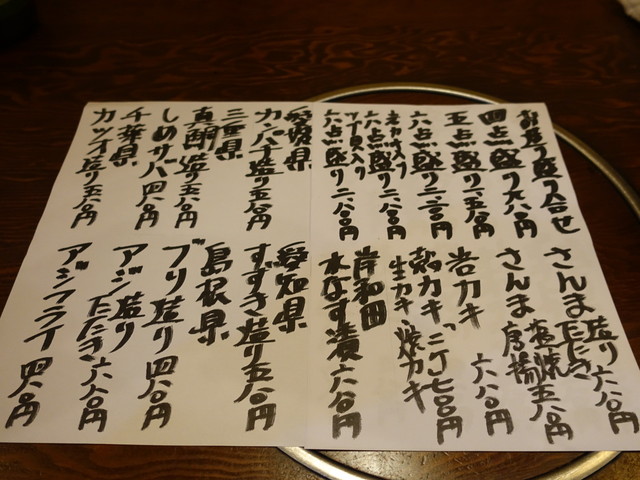 お造り盛り合せ
四点盛り九八〇円
五点盛り一、五八〇円
六点盛り二、二八〇円
岩カキ入り
六点盛り二、八八〇円
六点盛り二、八八〇円
愛媛県
カンパチ造り五八〇円
三重県
真鯛造り五八〇円
しめサバ四八〇円
千葉県
カツオ造り五八〇円
さんま造り六八〇円
たたき
さんま塩焼五八〇円
唐揚
岩カキ 六八〇円
殻カキ 二ケ七八〇円
生カキ 焼カキ
岸和田
水なす漬六八〇円
愛知県
すずき造り五八〇円
島根県
ブリ造り四八〇円
アジ造り
たたき六八〇円
アジフライ四八〇円